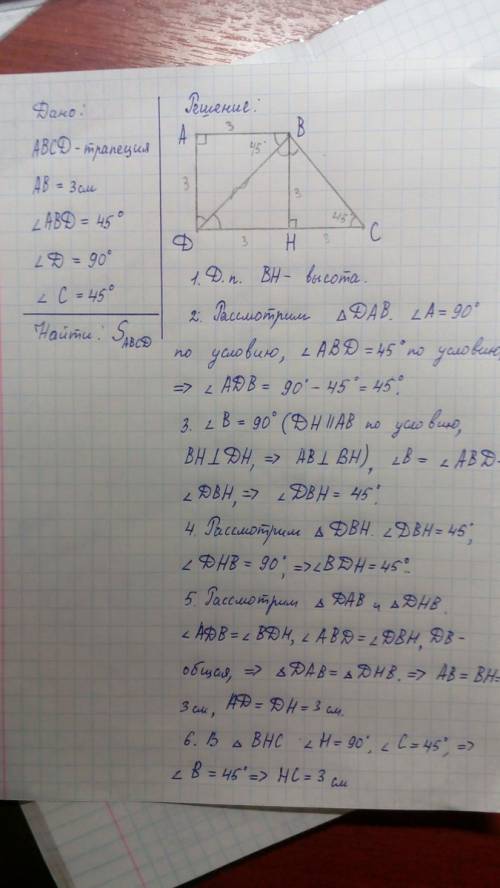 Дано:
ABCD - трапеция
AB = 3 см
∠ABD = 45°
∠D = 90°
∠C = 45°
Найти: S ABCD
Решение:
A 3 B
45°
3 3
45°
D 3 H 3 C
1. Д.п. BH - высота.
2. Рассмотрим △DAB. ∠A = 90°
по условию, ∠ABD = 45° по условию,
=> ∠ADB = 90° - 45° = 45°.
3. ∠B = 90° (DH ∥ AB по условию,
BH ⊥ DH, => AB ⊥ BH), ∠B = ∠ABD -
∠DBH, => ∠DBH = 45°
4. Рассмотрим △DBH. ∠DBH = 45°,
∠DHB = 90°, => ∠BDH = 45°.
5. Рассмотрим △DAB и △DHB.
∠ADB = ∠BDH, ∠ABD = ∠DBH, DB -
общая, => △DAB = △DHB. => AB = BH =
3 см, AD = DH = 3 см.
6. В △BHC ∠H = 90°, ∠C = 45°, =>
∠B = 45° => HC = 3 см